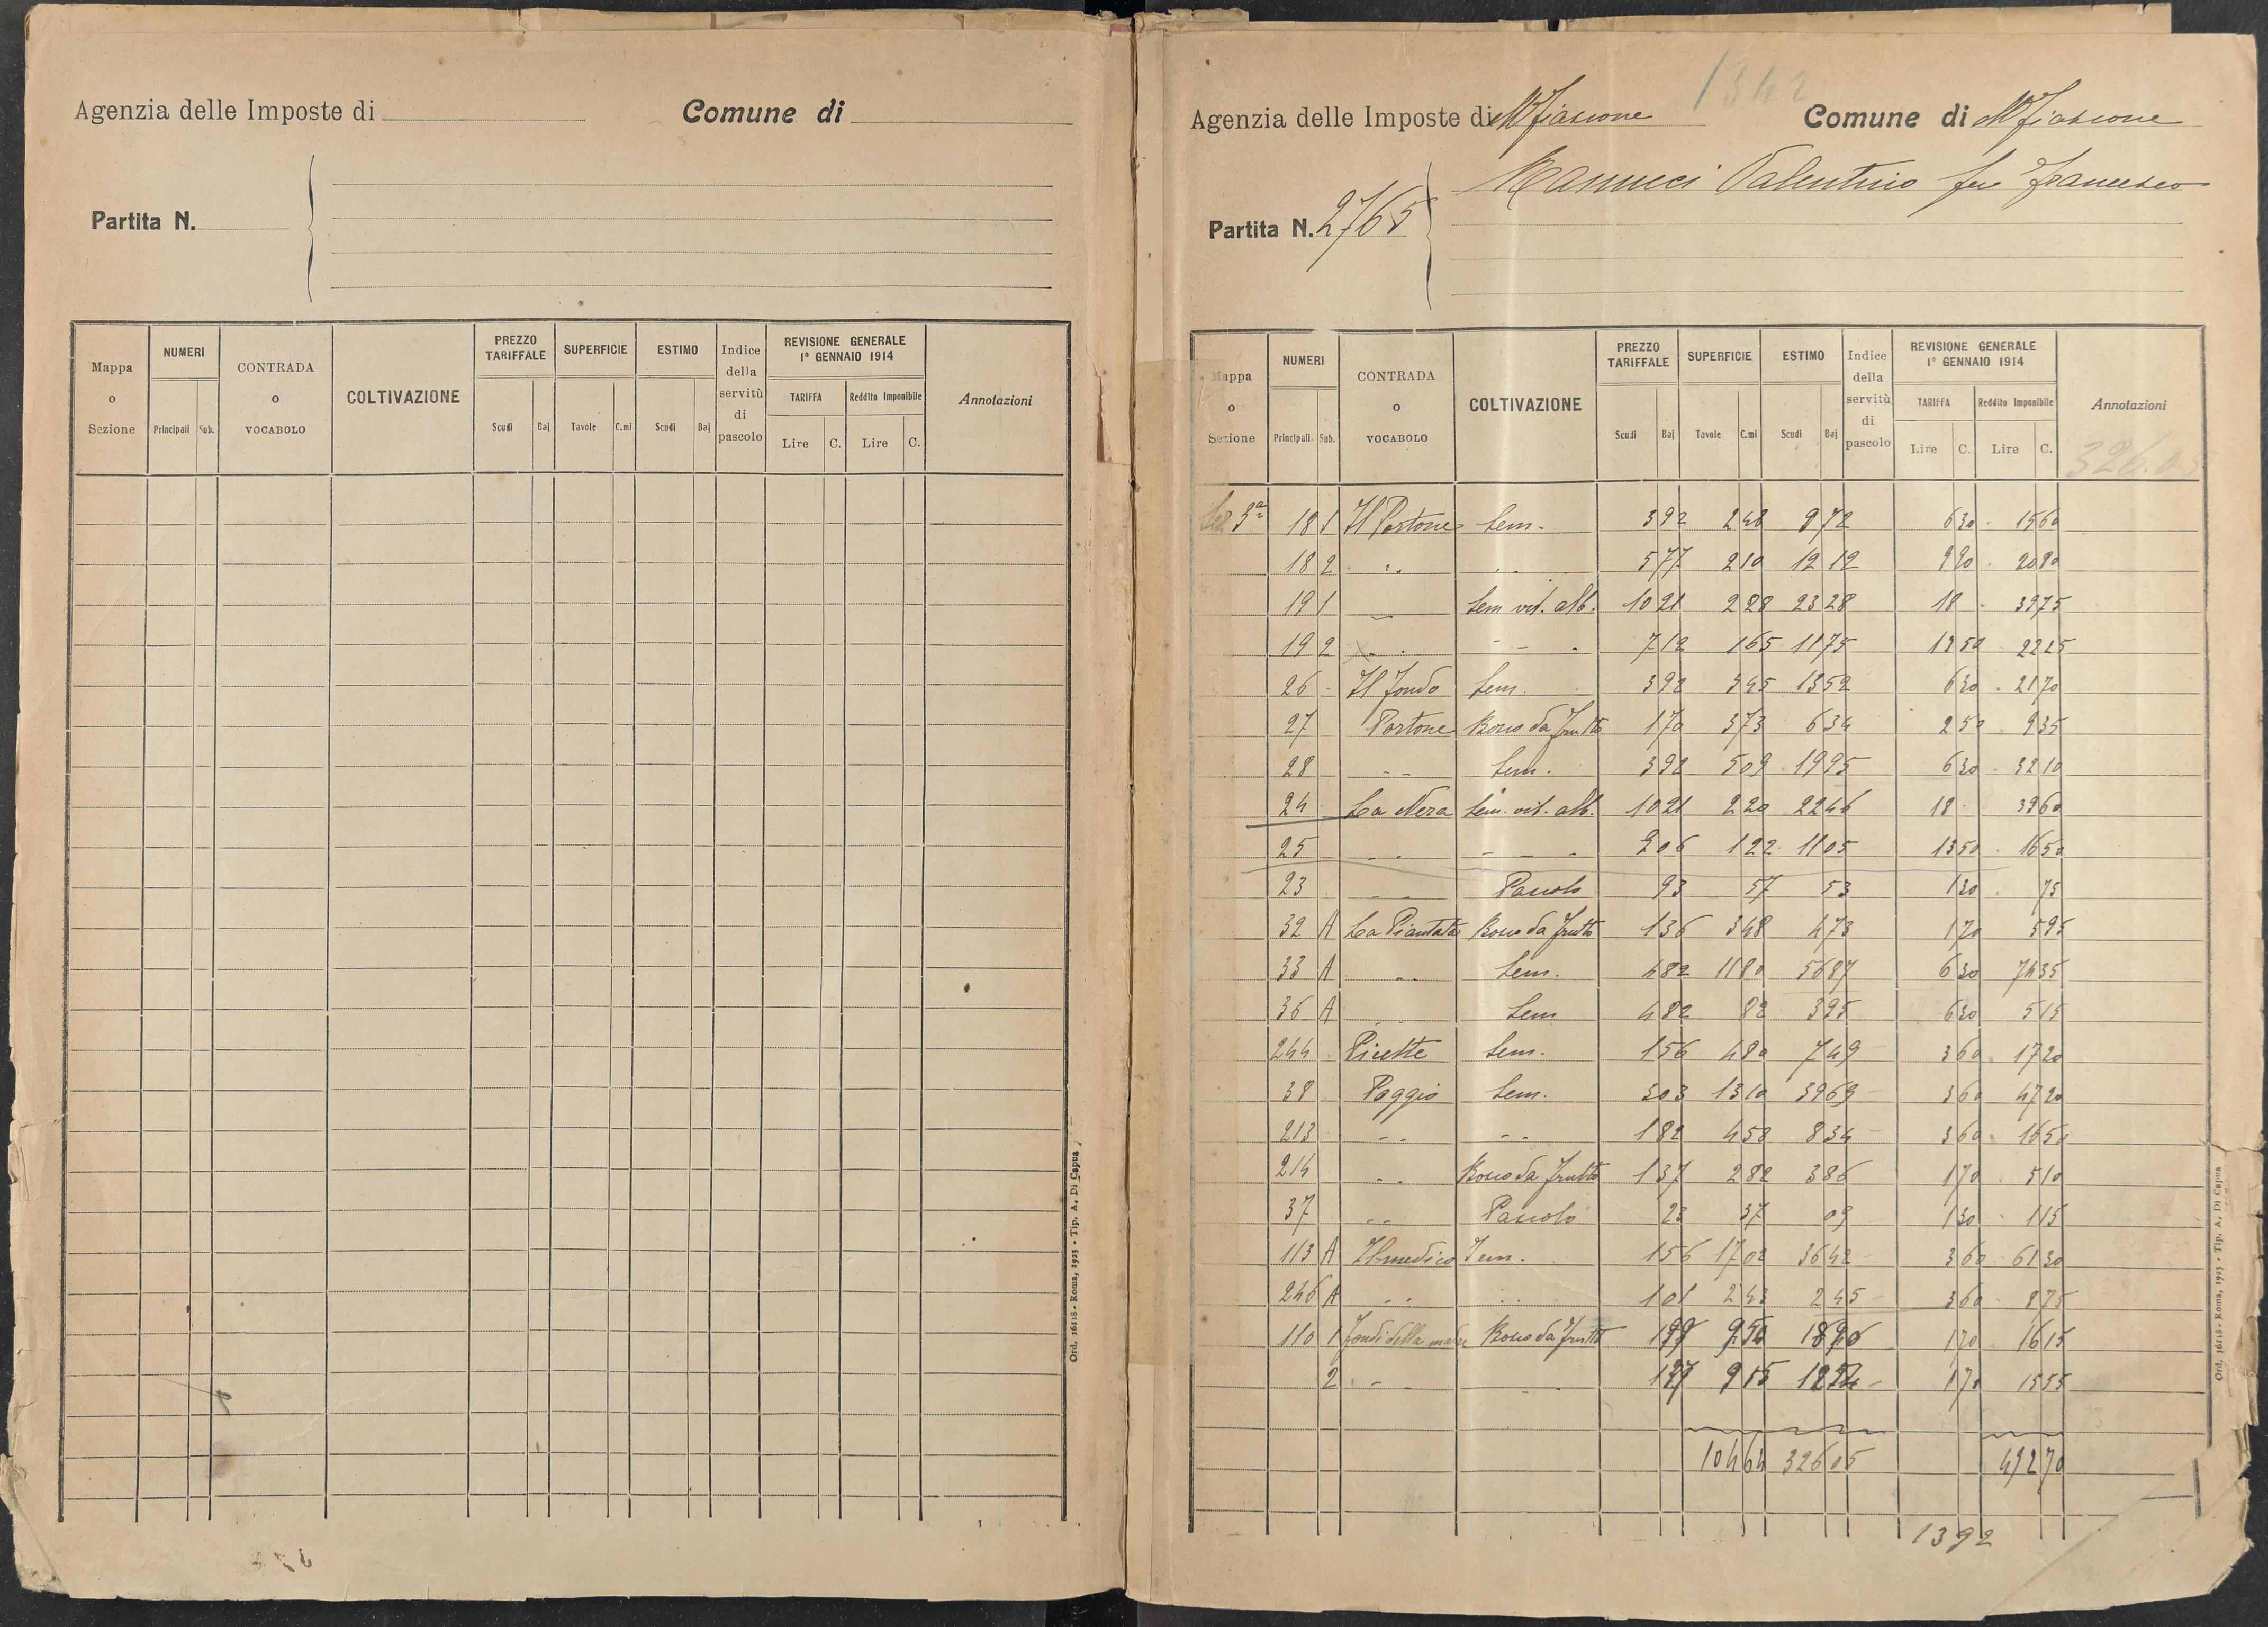 Agenzia delle Imposte di
Comune di
Partita N.
Mappa o Sezione
NUMERI
Principali Sub.
CONTRADA o VOCABOLO
COLTIVAZIONE
PREZZO TARIFFALE
Scudi Baj
SUPERFICIE
Tavole C.mi
ESTIMO
Scudi Baj
Indice della servitù di pascolo
REVISIONE GENERALE 1° GENNAIO 1914
TARIFFA
Lire C.
Reddito Imponibile
Lire C.
Annotazioni
Ord. 16118 - Roma, 1923 - Tip. A. Di Capua
1342
Agenzia delle Imposte di Mfiascone
Comune di Mfiascone
Partita N. 2765
Mannucci Valentino fu Francesco
Mappa o Sezione
NUMERI
Principali Sub.
CONTRADA o VOCABOLO
COLTIVAZIONE
PREZZO TARIFFALE
Scudi Baj
SUPERFICIE
Tavole C.mi
ESTIMO
Scudi Baj
Indice della servitù di pascolo
REVISIONE GENERALE 1° GENNAIO 1914
TARIFFA
Lire C.
Reddito Imponibile
Lire C.
Annotazioni
326.05
Sez 3ª 18 1 Il Portone Sem. 3 92 2 48 9 72 6 30 15 60
18 2 " " 5 77 2 10 12 12 9 90 20 80
19 1 " Sem vit. alb. 10 21 2 28 23 28 18 39 75
19 2 " " 7 12 1 65 11 75 13 50 22 25
26 Il Fondo Sem. 3 92 3 45 13 52 6 30 21 70
27 Portone Bosco da frutto 1 70 3 73 6 34 2 50 9 35
28 " Sem. 3 92 5 09 19 95 6 30 32 10
24 La Nera Sem. vit. alb. 10 21 2 20 22 46 18 39 60
25 " " 9 06 1 22 11 05 13 50 16 50
23 " Pascolo 93 57 53 1 30 75
32 A La Piantata Bosco da frutto 1 36 3 48 4 73 1 70 5 95
33 A " Sem. 4 82 11 80 56 87 6 30 74 35
36 A " Sem 4 82 82 3 95 6 30 5 15
244 Picette Sem. 1 56 4 80 7 49 3 60 17 20
38 Poggio Sem. 3 03 13 10 39 69 3 60 47 20
213 " " 1 82 4 58 8 34 3 60 16 50
214 " Bosco da frutto 1 37 2 82 3 86 1 70 5 10
37 " Pascolo 23 37 09 1 30 1 15
113 A Il medico Sem. 1 56 17 02 36 42 3 60 61 30
246 A " " 1 01 2 43 2 45 3 60 8 75
110 1 Fondi della Bosco da frutto 1 70 16 15
2 " " 1 37 9 15 1 70 15 55
104 64 326 05 492 70
1392